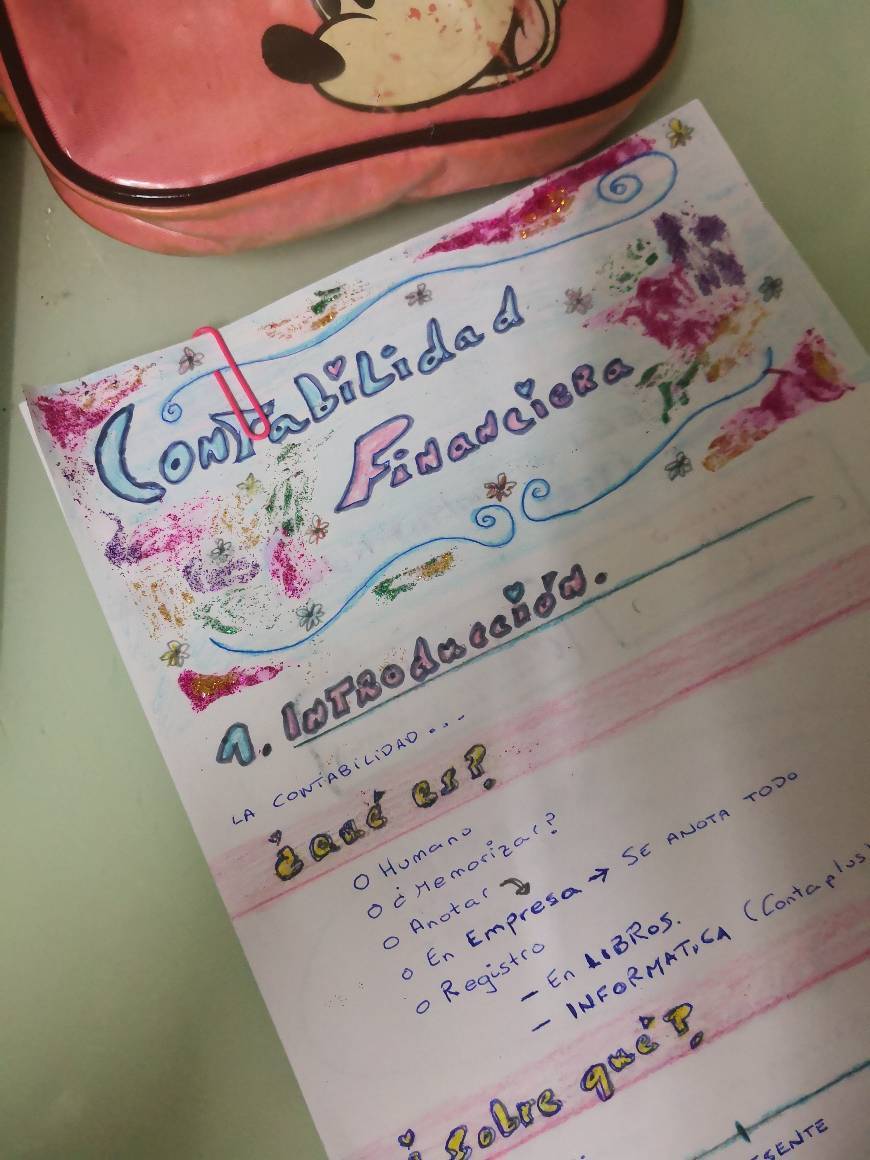 Contabilidad
Financiera
1. Introducción.
LA CONTABILIDAD...
¿qué es?
o Humano
o ¿Memorizar?
o Anotar ↷
o En Empresa → SE ANOTA TODO
o Registro
- En LIBROS.
- INFORMATICA (Contaplus)
¿Sobre qué?